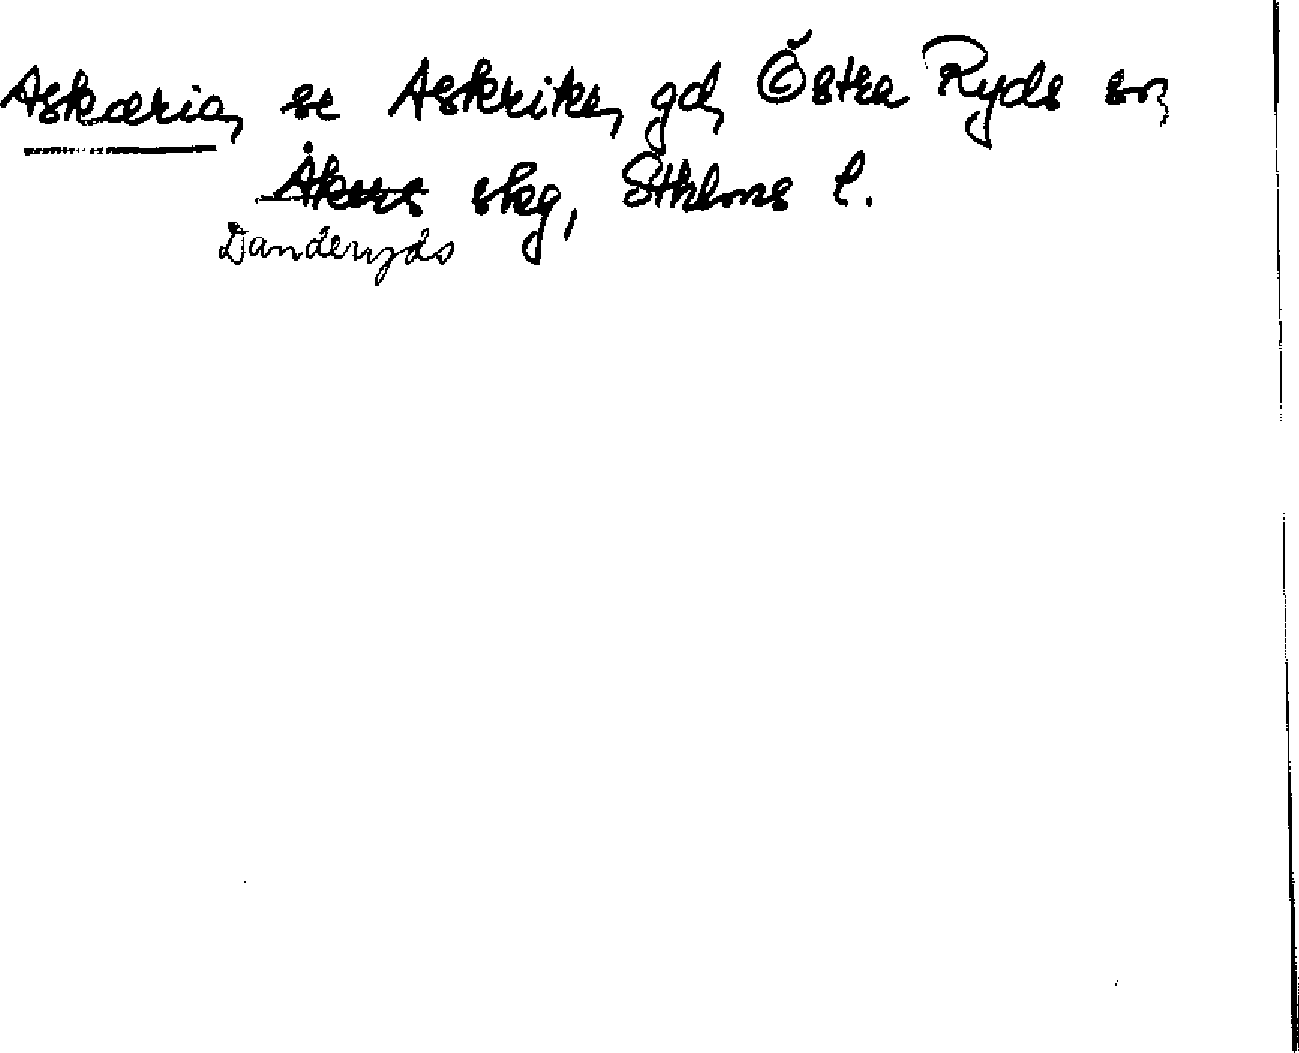 Askæria, se Askrike, gd, Östra Ryds sn,
Åkers skg, Sthlms l.
Danderyds